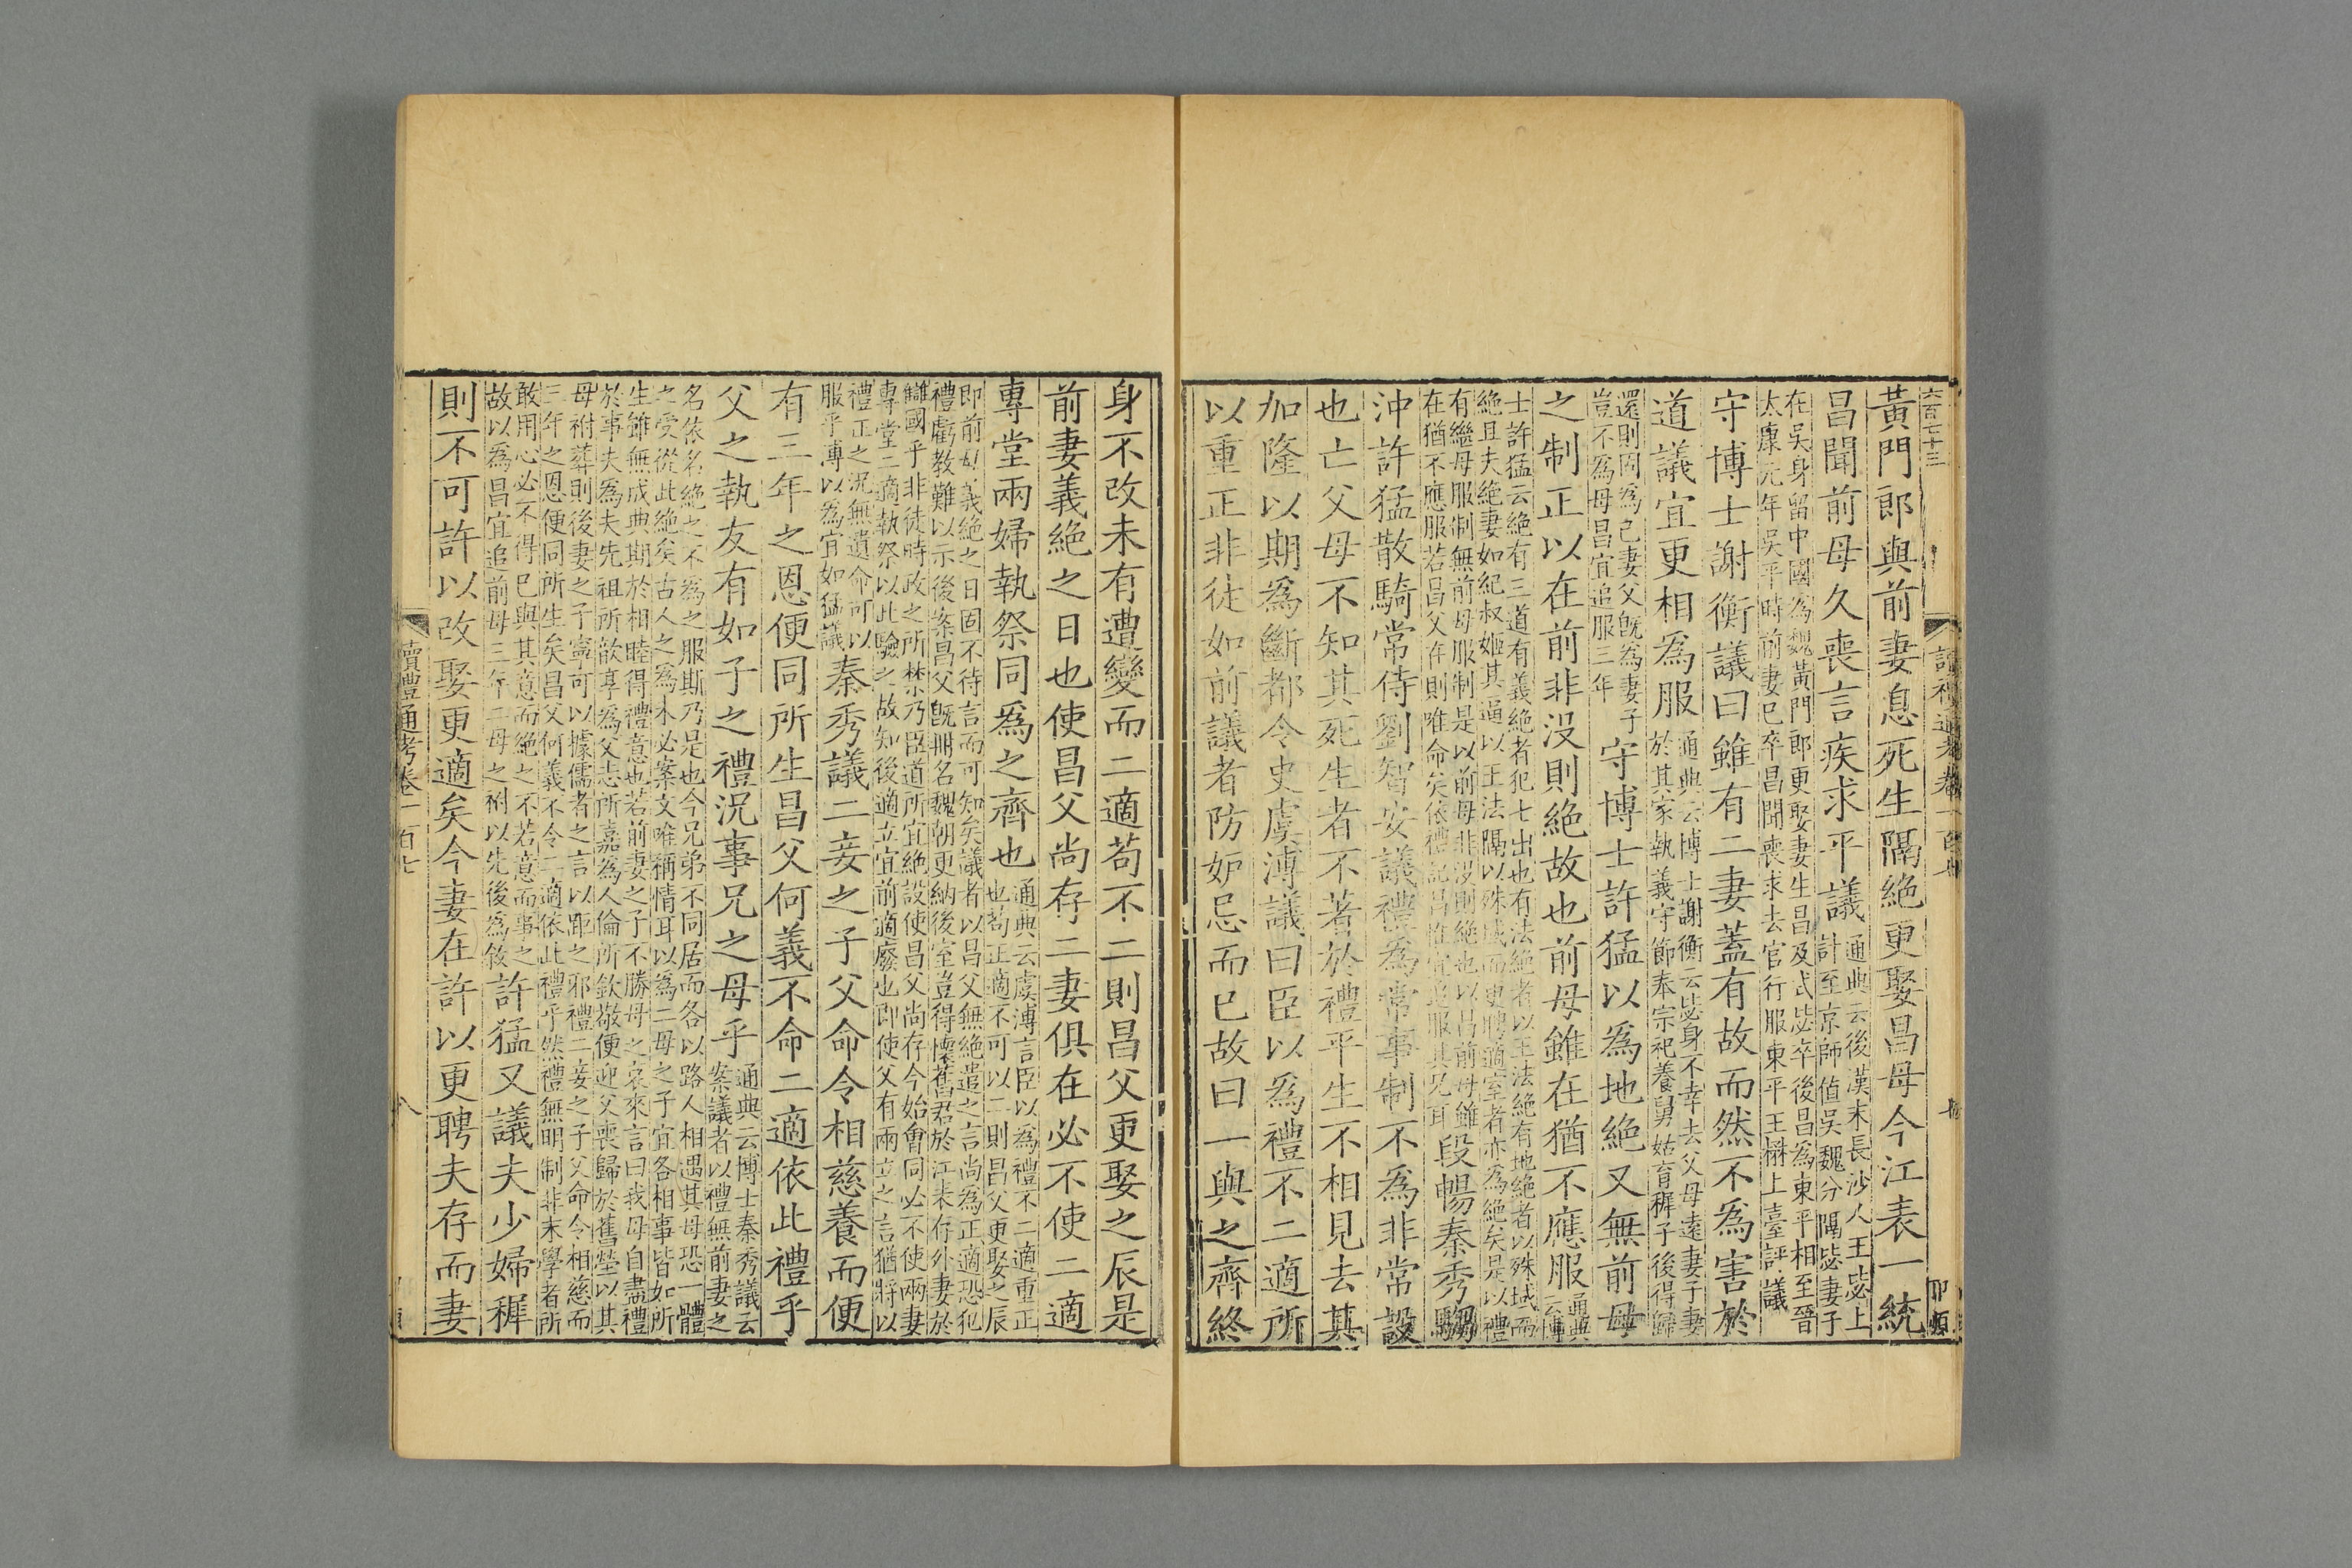 六百七十三
黃門郎與前妻息死生隔絶更娶昌母今江表一統
昌聞前母久喪言疾求平議
通典云後漢末長沙人王毖上計至京師值吳魏分隔毖妻子
在吳身留中國為魏黃門郎更娶妻生昌及式毖卒後昌為東平相至晉
太康元年吳平時前妻已卒昌聞喪求去官行服東平王楙上臺評議
守博士謝衡議曰雖有二妻蓋有故而然不為害於
道議宜更相為服
通典云博士謝衡云毖身不幸去父母遠妻子妻
於其家執義守節奉宗祀養舅姑育穉子後得歸
還則固為己妻父旣為妻子
豈不為母昌宜追服三年
守博士許猛以為地絶又無前母
之制正以在前非没則絶故也前母雖在猶不應服
通典
云博
士許猛云絶有三道有義絶者犯七出也有法絶者以王法絶有地絶者以殊域而
絶且夫絶妻如紀叔姬其逼以王法隔以殊域而更聘適室者亦為絶矣是以禮
有繼母服制無前母服制是以前母非没則絶也以昌前母雖
在猶不應服若昌父在則唯命矣依禮記昌惟宜追服其兄耳
段暢秦秀騶
沖許猛散騎常侍劉智安議禮為常事制不為非常設
也亡父母不知其死生者不著於禮平生不相見去其
加隆以期爲斷都令史虞溥議曰臣以為禮不二適所
以重正非徒如前議者防妒忌而已故曰一與之齊終
身不改未有遭變而二適苟不二則昌父更娶之辰是
前妻義絶之日也使昌父尚存二妻俱在必不使二適
專堂兩婦執祭同爲之齊也
通典云虞溥言臣以為禮不二適重正
也苟正適不可以二則昌父更娶之辰
即前母義絶之日固不待言而可知矣議者以昌父無絶遣之言尚為正適恐犯
禮虧教難以示後案昌父旣冊名魏朝更納後室豈得懷舊君於江未存外妻於
讎國乎非徒時政之所禁乃臣道所宜絶設使昌父尚存今始會同必不使兩妻
專堂二適執祭以此驗之故知後適立宜前適廢也即使父有兩立之言猶將以
禮正之況無遺命可以
服乎溥以為宜如猛議
秦秀議二妾之子父命令相慈養而便
有三年之恩便同所生昌父何義不命二適依此禮乎
父之執友有如子之禮況事兄之母乎
通典云博士秦秀議云
案議者以禮無前妻之
名依名絶之不為之服斯乃是也今兄弟不同居而各以路人相遇其母恐一體
之受從此絶矣古人之為木必案文唯稱情耳以為二母之子宜各相事皆如所
生雖無成典期於相睦得禮意也若前妻之子不勝母之哀來言曰我母自盡禮
於事夫爲夫先祖所歆享為父志所嘉為人倫所欽敬便迎父喪歸於舊塋以其
母祔葬則後妻之子寧可以據儒者之言以距之邪禮二妾之子父命令相慈而
三年之恩便同所生矣昌父何義不令二適依此禮乎然禮無明制非末學者所
敢用心必不得已與其意而絶之不若意而事之
故以為昌宜追前母三年二母之祔以先後為敘
許猛又議夫少婦穉
則不可許以改娶更適矣今妻在許以更聘夫存而妻
讀禮通考卷一百七
八